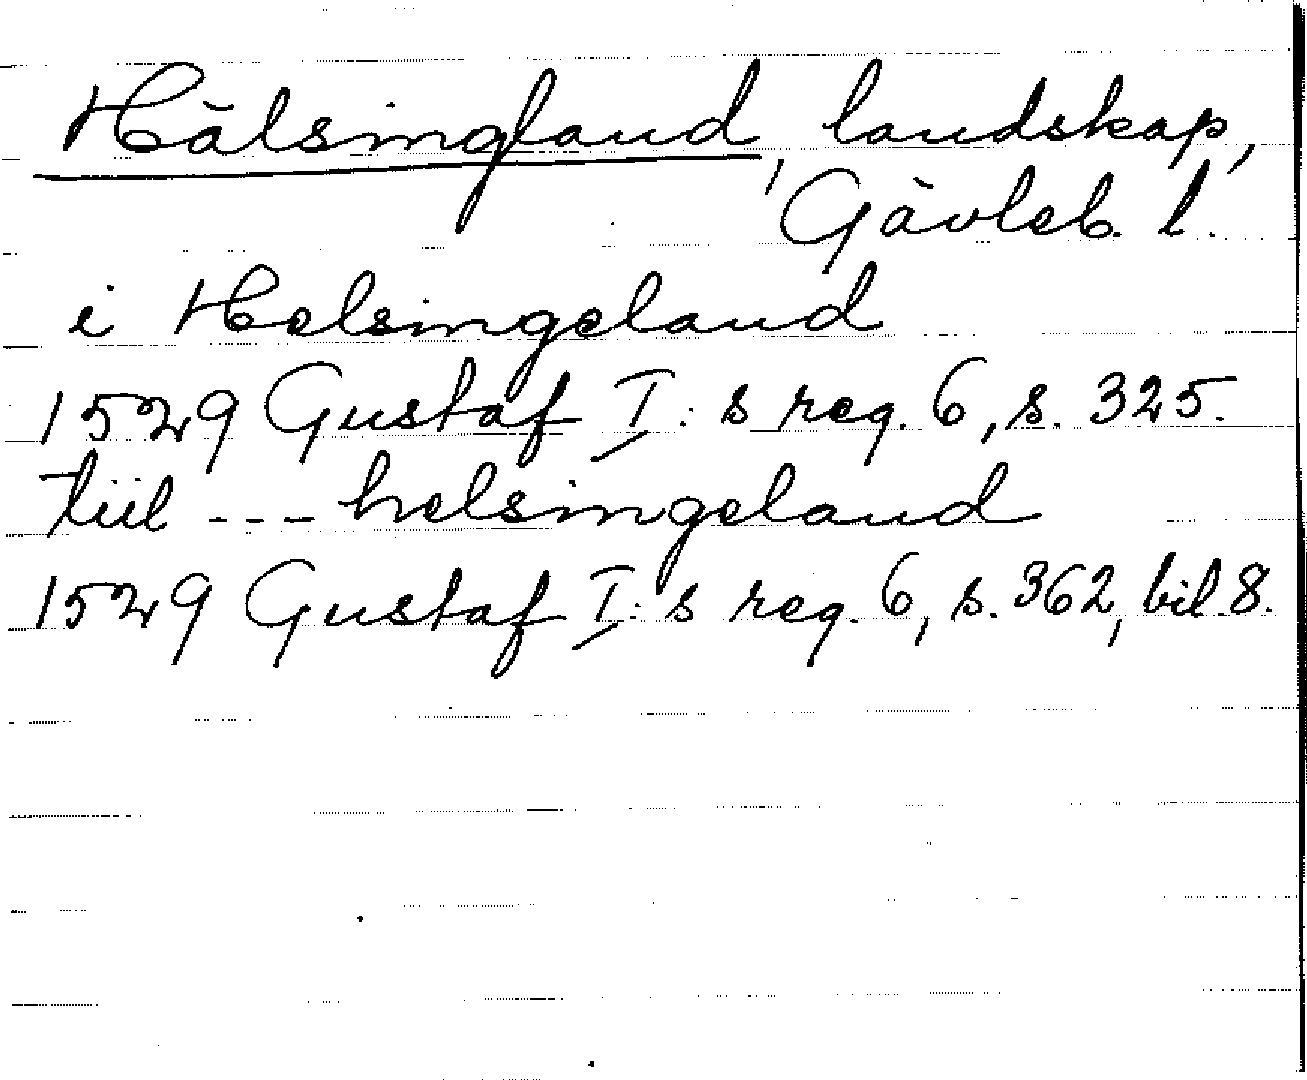 Hälsingland, landskap,
Gävleb. l.
i Helsingeland
1529 Gustaf I:s reg. 6, s. 325.
tiil --- helsingeland
1529 Gustaf I:s reg. 6, s. 362, bil. 8.